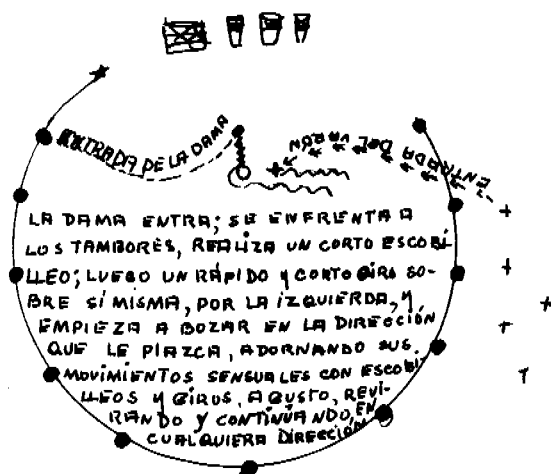 ENTRADA DE LA DAMA
ENTRADA DEL VARON
LA DAMA ENTRA; SE ENFRENTA A
LOS TAMBORES, REALIZA UN CORTO ESCOBI
LLEO; LUEGO UN RÁPIDO Y CORTO GIRO SO-
BRE SÍ MISMA, POR LA IZQUIERDA, Y
EMPIEZA A BOZAR EN LA DIRECCIÓN
QUE LE PLAZCA, ADORNANDO SUS
MOVIMIENTOS SENSUALES CON ESCOBI-
LLEOS Y GIROS, A GUSTO, REVI-
RANDO Y CONTINUANDO, EN
CUALQUIERA DIRECCIÓN